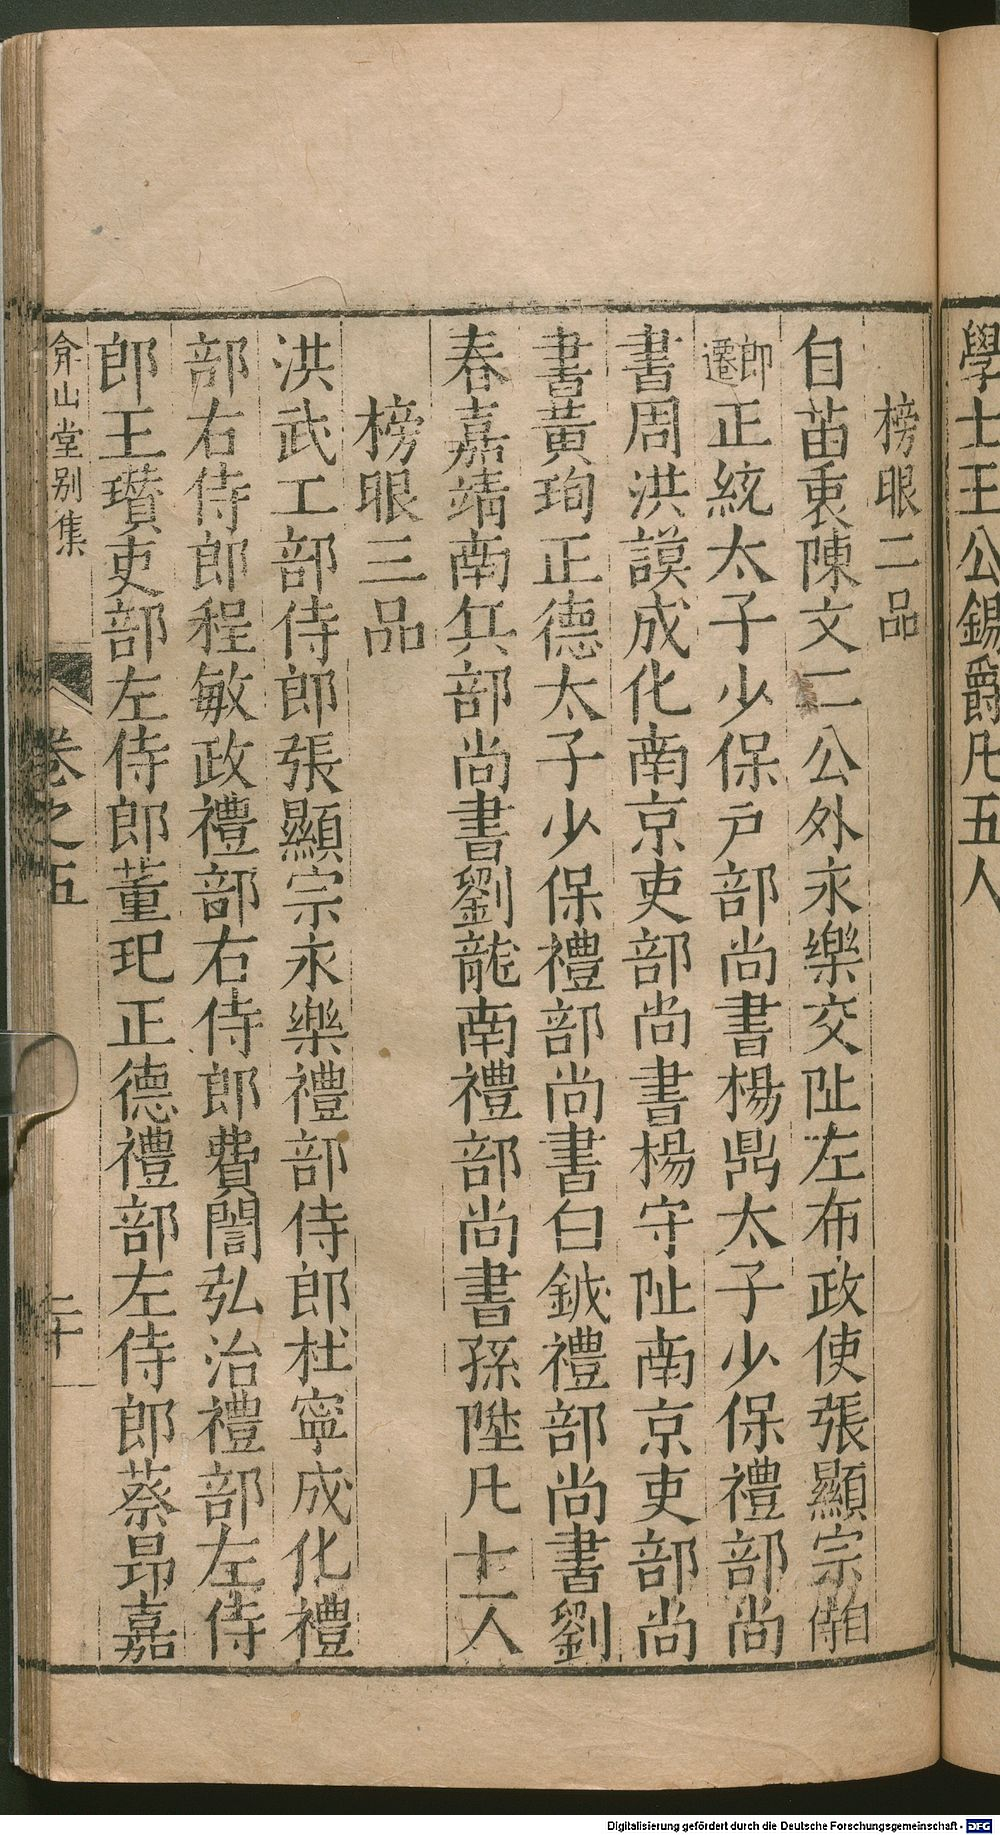 學士王公錫爵凡五人
榜眼二品
自苗衷陳文二公外永樂交阯左布政使張顯宗自侍
郎遷正統太子少保戶部尚書楊鼎太子少保禮部尚
書周洪謨成化南京吏部尚書楊守阯南京吏部尚
書黃珣正德太子少保禮部尚書白鉞禮部尚書劉
春嘉靖南兵部尚書劉龍南禮部尚書孫陞凡十一人
榜眼三品
洪武工部侍郎張顯宗永樂禮部侍郎杜寧成化禮
部右侍郎程敏政禮部右侍郎費誾弘治禮部左侍
郎王瓚吏部左侍郎董玘正德禮部左侍郎蔡昂嘉
弇山堂别集
卷之五
二十
Digitalisierung gefördert durch die Deutsche Forschungsgemeinschaft - DFG